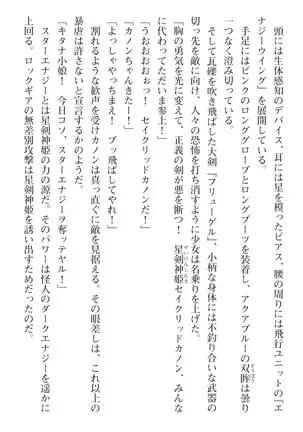 頭には生体感知のデバイス、耳には星を模ったピアス、腰の周りには飛行ユニットの『エ
ナジーウイング』を展開している。
手足にはピンクのロンググローブとロングブーツを装着し、アクアブルーの双眸は曇り
一つなく澄み切っている。
そして瓦礫を吹き飛ばした大剣『フリューゲル』、小柄な身体には不釣り合いな武器の
切っ先を敵に向け、人々の恐怖を打ち消すように少女は名乗りを上げた。
「胸の勇気を光に変えて、正義の剣が悪を断つ！　星剣神姫セイクリッドカノン、みんな
に代わってただいま参上！」
「うおおおおっ！　セイクリッドカノンだ！」
「カノンちゃんきたー！」
「よっしゃやっちまえー！　ブッ飛ばしてやれー！」
割れるような歓声を受けカノンは真っ直ぐに敵を見据える。その眼差しは、これ以上の
暴虐は許さないと宣言するかのようだ。
「キタナ小娘！　今日コソ、スターエナジーヲ奪ッテヤル！」
スターエナジーとは星剣神姫の力の源だ。そのパワーは怪人のダークエナジーを遥かに
上回る。ロックギアの無差別攻撃は星剣神姫を誘い出すためだったのだ。